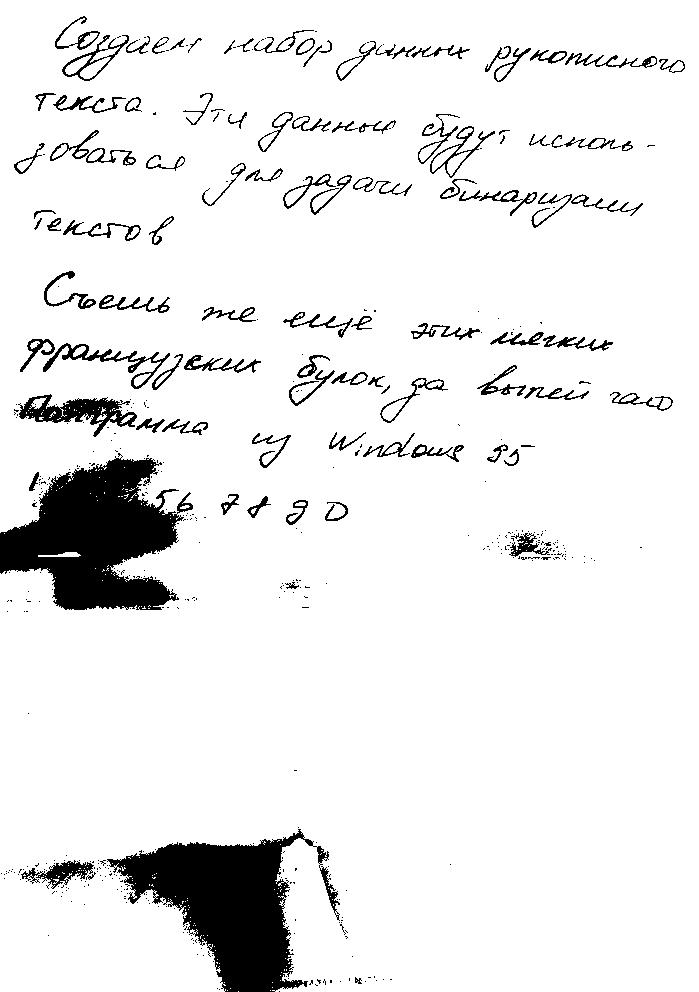 Создаем набор данных рукописного
текста. Эти данные будут исполь-
зоваться для задачи бинаризации
текстов
Съешь же ещё этих мягких
французских булок, да выпей чаю
Панграмма из Windows 95
1 56 7 8 9 0